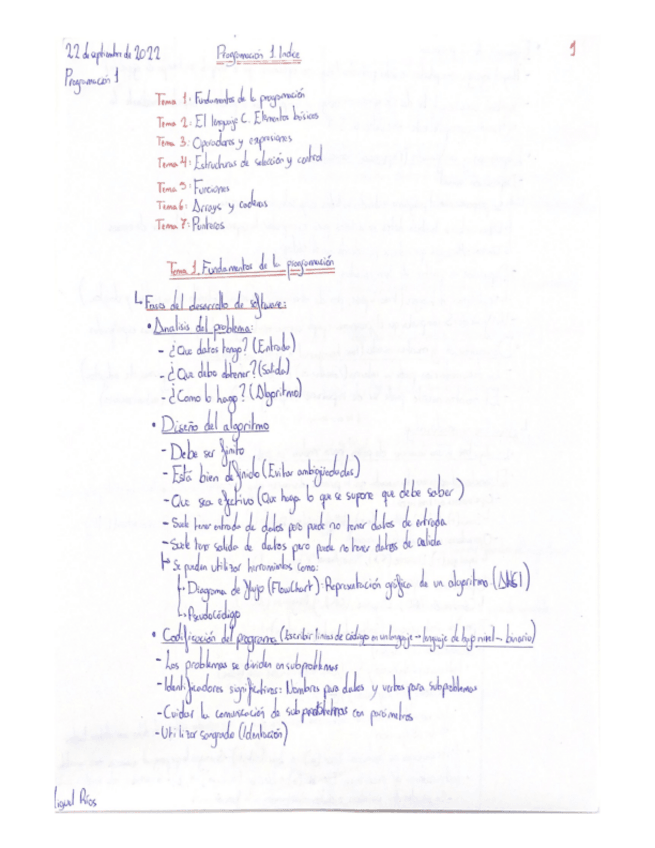 22 de septiembre de 2022
Programación 1 Indice
1
Programación 1
Tema 1: Fundamentos de la programación
Tema 2: El lenguaje C. Elementos básicos
Tema 3: Operadores y expresiones
Tema 4: Estructuras de selección y control
Tema 5: Funciones
Tema 6: Arrays y cadenas
Tema 7: Punteros
Tema 1. Fundamentos de la programación
Fases del desarrollo de software:
• Analisis del problema:
- ¿Que datos tengo? (Entrada)
- ¿Que debo obtener? (Salida)
- ¿Como lo hago? (Algoritmo)
• Diseño del algoritmo
- Debe ser finito
- Está bien definido (Evitar ambigüedades)
- Que sea efectivo (Que haga lo que se supone que debe saber)
- Suele tener entrada de datos pero puede no tener datos de entrada
- Suele tener salida de datos pero puede no tener datos de salida
Se pueden utilizar herramientas como:
Diagrama de flujo (FlowChart): Representación gráfica de un algoritmo (ANSI)
Pseudocódigo
• Codificación del programa (Escribir lineas de código en un lenguaje - lenguaje de bajo nivel - binario)
- Los problemas se dividen en subproblemas
- Identificadores significativos: Nombres para datos y verbos para subproblemas
- Cuidar la comunicación de subproblemas con parámetros
- Utilizar sangrado (Identación)
iguel Ríos